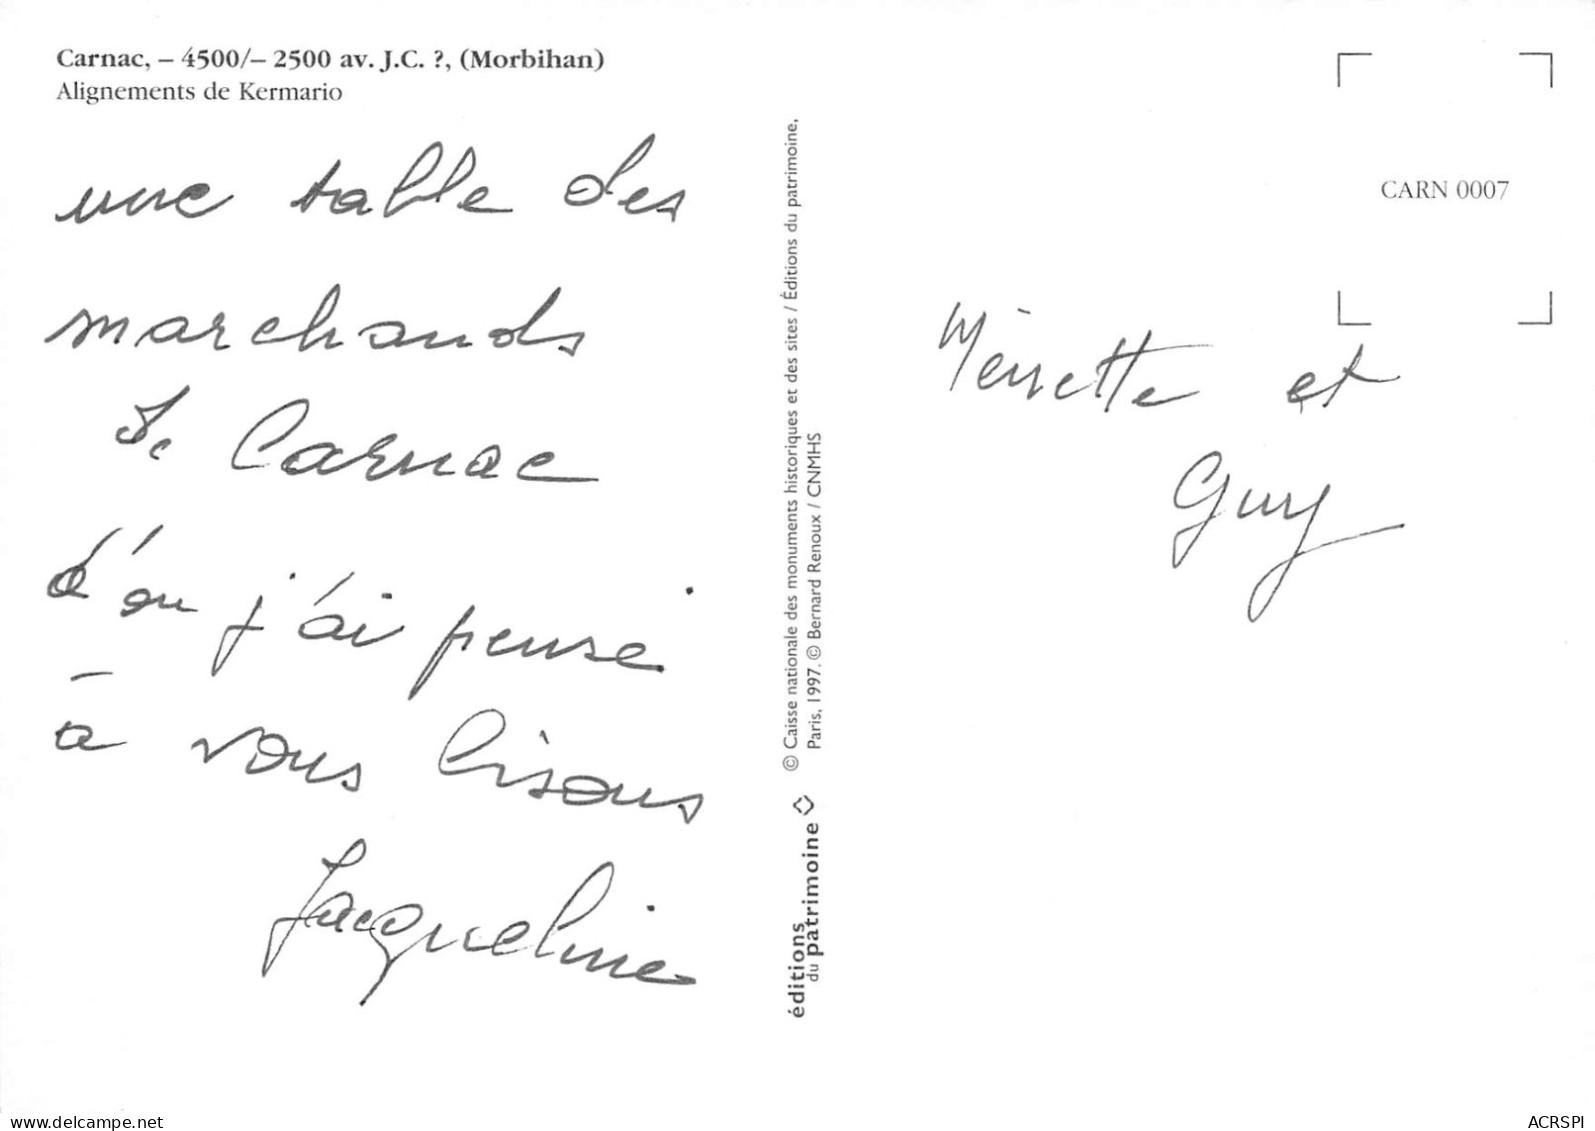 Carnac, – 4500/– 2500 av. J.C. ?, (Morbihan)
Alignements de Kermario
une table des
marchands
de Carnac
d'où j'ai pensé
à vous bisous
Jacqueline
© Caisse nationale des monuments historiques et des sites / Éditions du patrimoine,
Paris, 1997. © Bernard Renoux / CNMHS
éditions
du patrimoine
CARN 0007
et
Guy
www.delcampe.net
ACRSPI